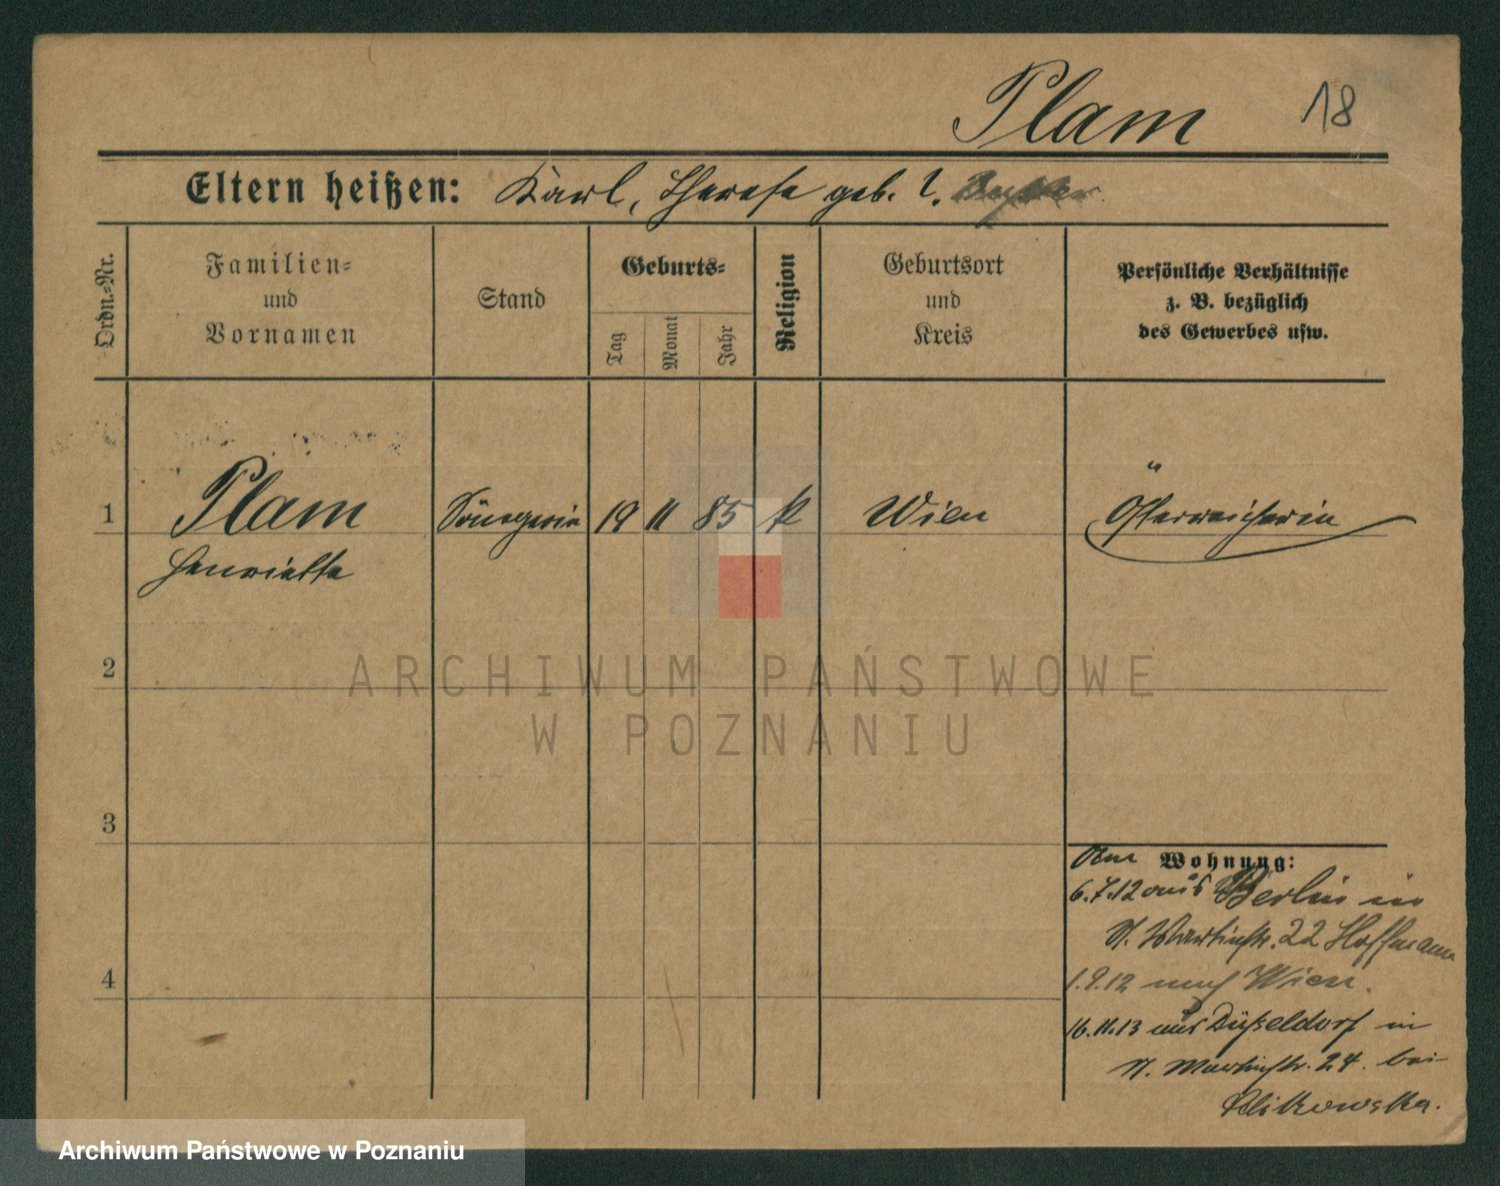 Plam 18
Eltern heißen: Karl, Therese geb. ?
Ordn.-Nr.
Familien-
und
Vornamen
Stand
Geburts-
Tag
Monat
Jahr
Religion
Geburtsort
und
Kreis
Persönliche Verhältnisse
z. B. bezüglich
des Gewerbes usw.
1 Plam Sängerin 19 11 85 k Wien Österreicherin
Henriette
2
3
4
ARCHIWUM PAŃSTWOWE
W POZNANIU
Wohnung:
6.7.12 aus Berlin in
St. Martinstr. 22 Hoffmann
1.9.12 nach Wien.
16.11.13 aus Düßeldorf in
St. Martinstr. 24. bei
Archiwum Państwowe w Poznaniu